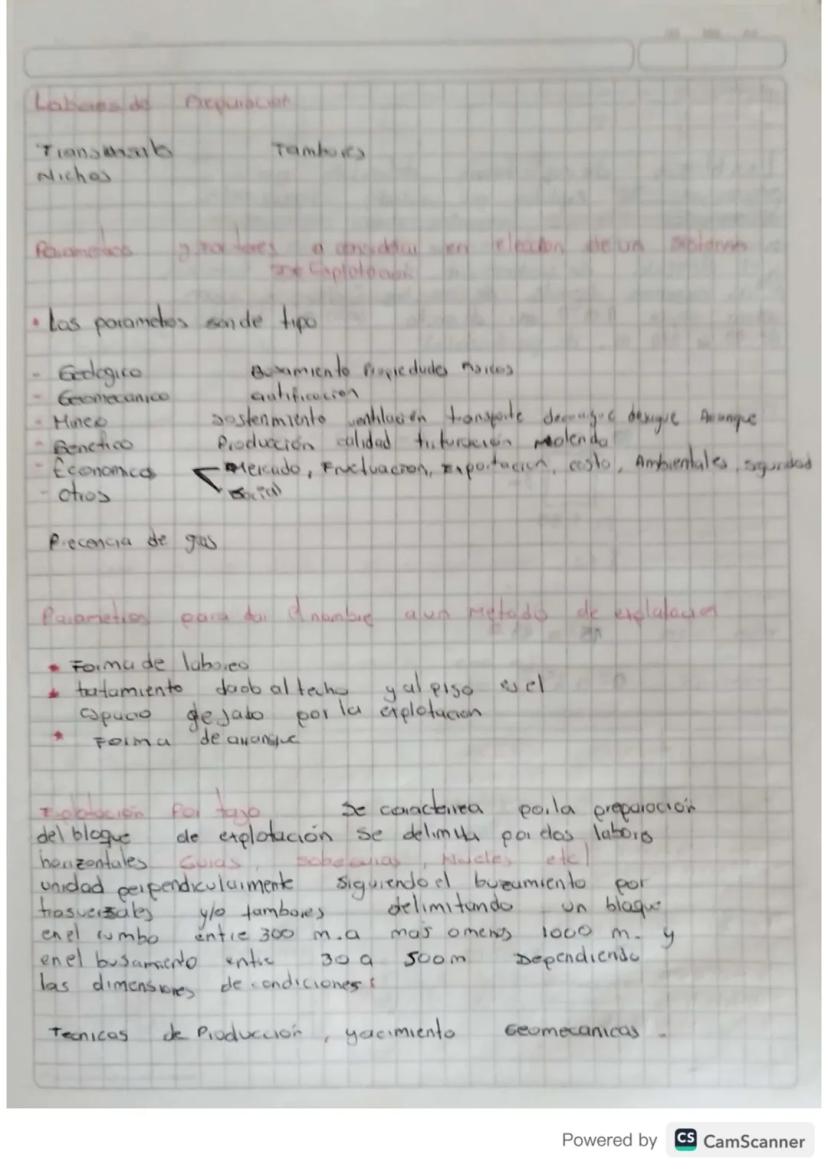 Labores de Preparación
Transversals Tambores
Nichos
Parametros y factores a considerar en eleccion de un sistema
de Explotación
• Los parametros son de tipo
- Geologico Buzamiento Propiedades
- Geomecanico
- Minero Sostenimiento ventilación transporte desague Avanque
- Benefico Producción calidad trituración Molenda
- Economica Mercado, Fructuacion, Exportacion, costo, Ambientales, seguridad
- Otros social
Precencia de gas
Parametros para dar el nombre a un Metodo de explotacion
• Forma de laboreo
• tratamiento dado al techo y al piso es el
espacio dejado por la explotacion
• Forma de avanque
Explotación Por tajo Se caracteriza por la preparación
del bloque de explotación se delimita por dos labors
horizontales Guias, sobreguias, Niveles, etc)
unidad perpendicularmente siguiendo el buzamiento por
trasversales y/o tambores delimitando un bloque
en el rumbo entre 300 m.a mas o menos 1000 m. y
en el busamiento entre 30 a 500m Dependiendo
las dimensiones de condiciones:
Tecnicas de Producción, yacimiento Geomecanicas.
Powered by CS CamScanner